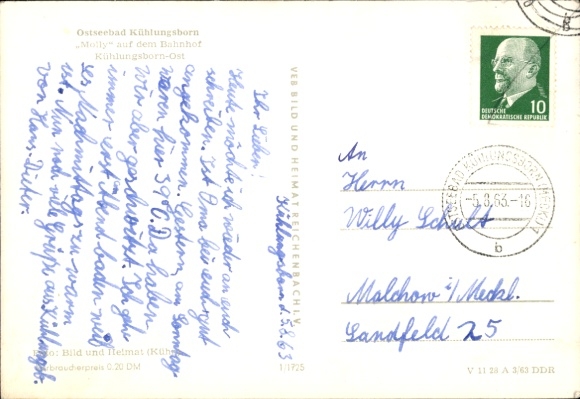 Ostseebad Kühlungsborn
„Molly“ auf dem Bahnhof
Kühlungsborn-Ost
Kühlungsborn d. 5.8.63
Ihr Lieben!
Heute möchte ich wieder an euch
schreiben. Ist Oma bei euch gut
angekommen. Gestern am Sonntag
waren hier 39°C. Da haben
wir aber geschwitzt. Ich gehe
immer erst Abend baden weil
es Nachmittags zu warm
ist. Nun noch viele Grüße aus Kühlungsb.
von Hans-Dieter.
Foto: Bild und Heimat (Kühn)
Verbraucherpreis 0,20 DM
VEB BILD UND HEIMAT REICHENBACH I. V.
1/1725
DEUTSCHE
DEMOKRATISCHE REPUBLIK
10
OSTSEEBAD KÜHLUNGSBORN (MECKL)
-6.8.63.-16
b
An
Herrn
Willy Schult
Malchow i/Meckl.
Landfeld 25
V 11 28 A 3/63 DDR